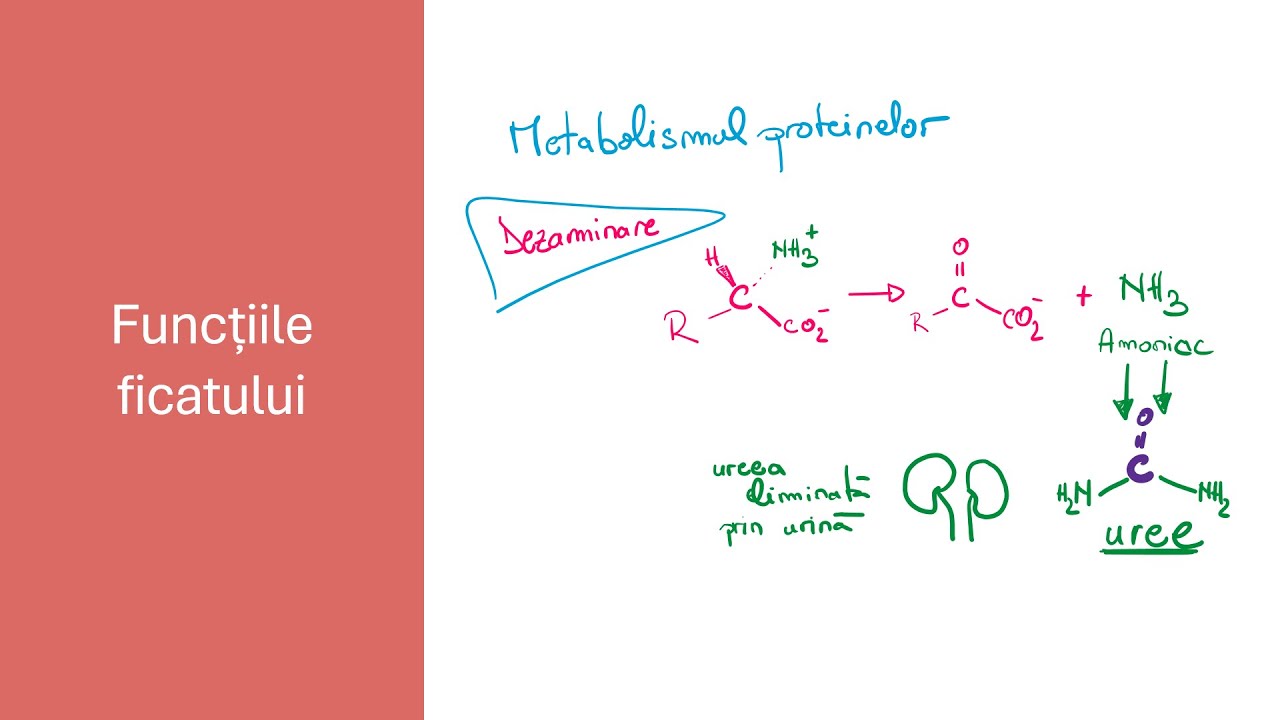 Funcțiile
ficatului
Metabolismul proteinelor
Dezaminare
H
NH₃⁺
R
C
CO₂⁻
O
R
C
CO₂⁻
+
NH₃
Amoniac
O
C
H₂N
NH₂
uree
ureea
eliminată
prin urină